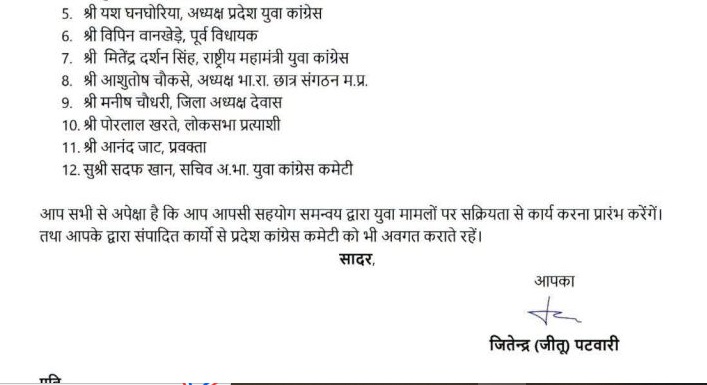 5. श्री यश घनघोरिया, अध्यक्ष प्रदेश युवा कांग्रेस
6. श्री विपिन वानखेड़े, पूर्व विधायक
7. श्री मितेंद्र दर्शन सिंह, राष्ट्रीय महामंत्री युवा कांग्रेस
8. श्री आशुतोष चौकसे, अध्यक्ष भा.रा. छात्र संगठन म.प्र.
9. श्री मनीष चौधरी, जिला अध्यक्ष देवास
10. श्री पोरलाल खरते, लोकसभा प्रत्याशी
11. श्री आनंद जाट, प्रवक्ता
12. सुश्री सदफ खान, सचिव अ.भा. युवा कांग्रेस कमेटी
आप सभी से अपेक्षा है कि आप आपसी सहयोग समन्वय द्वारा युवा मामलों पर सक्रियता से कार्य करना प्रारंभ करेंगें।
तथा आपके द्वारा संपादित कार्यो से प्रदेश कांग्रेस कमेटी को भी अवगत कराते रहें।
सादर,
आपका
जितेन्द्र (जीतू) पटवारी